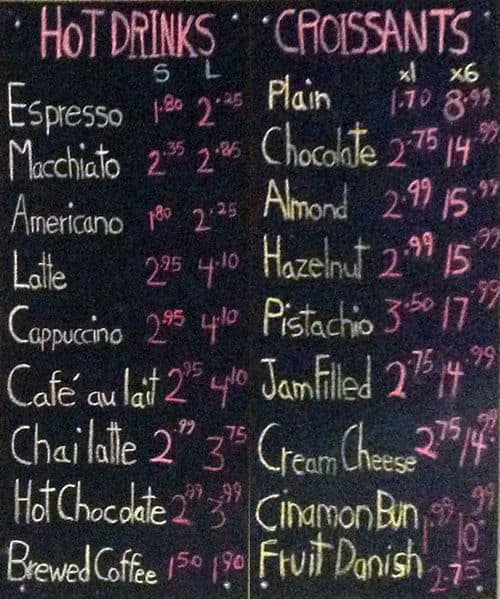 HOT DRINKS
S L
Espresso 1.80 2.25
Macchiato 2.35 2.85
Americano 1.80 2.25
Latte 2.95 4.10
Cappuccino 2.95 4.10
Café au lait 2.95 4.10
Chai latte 2.99 3.75
Hot Chocolate 2.99 3.99
Brewed Coffee 1.50 1.90
CROISSANTS
x1 x6
Plain 1.70 8.99
Chocolate 2.75 14.99
Almond 2.99 15.99
Hazelnut 2.99 15.99
Pistachio 3.50 17.99
Jam Filled 2.75 14.99
Cream Cheese 2.75 14.99
Cinamon Bun 1.99 10.99
Fruit Danish 2.75